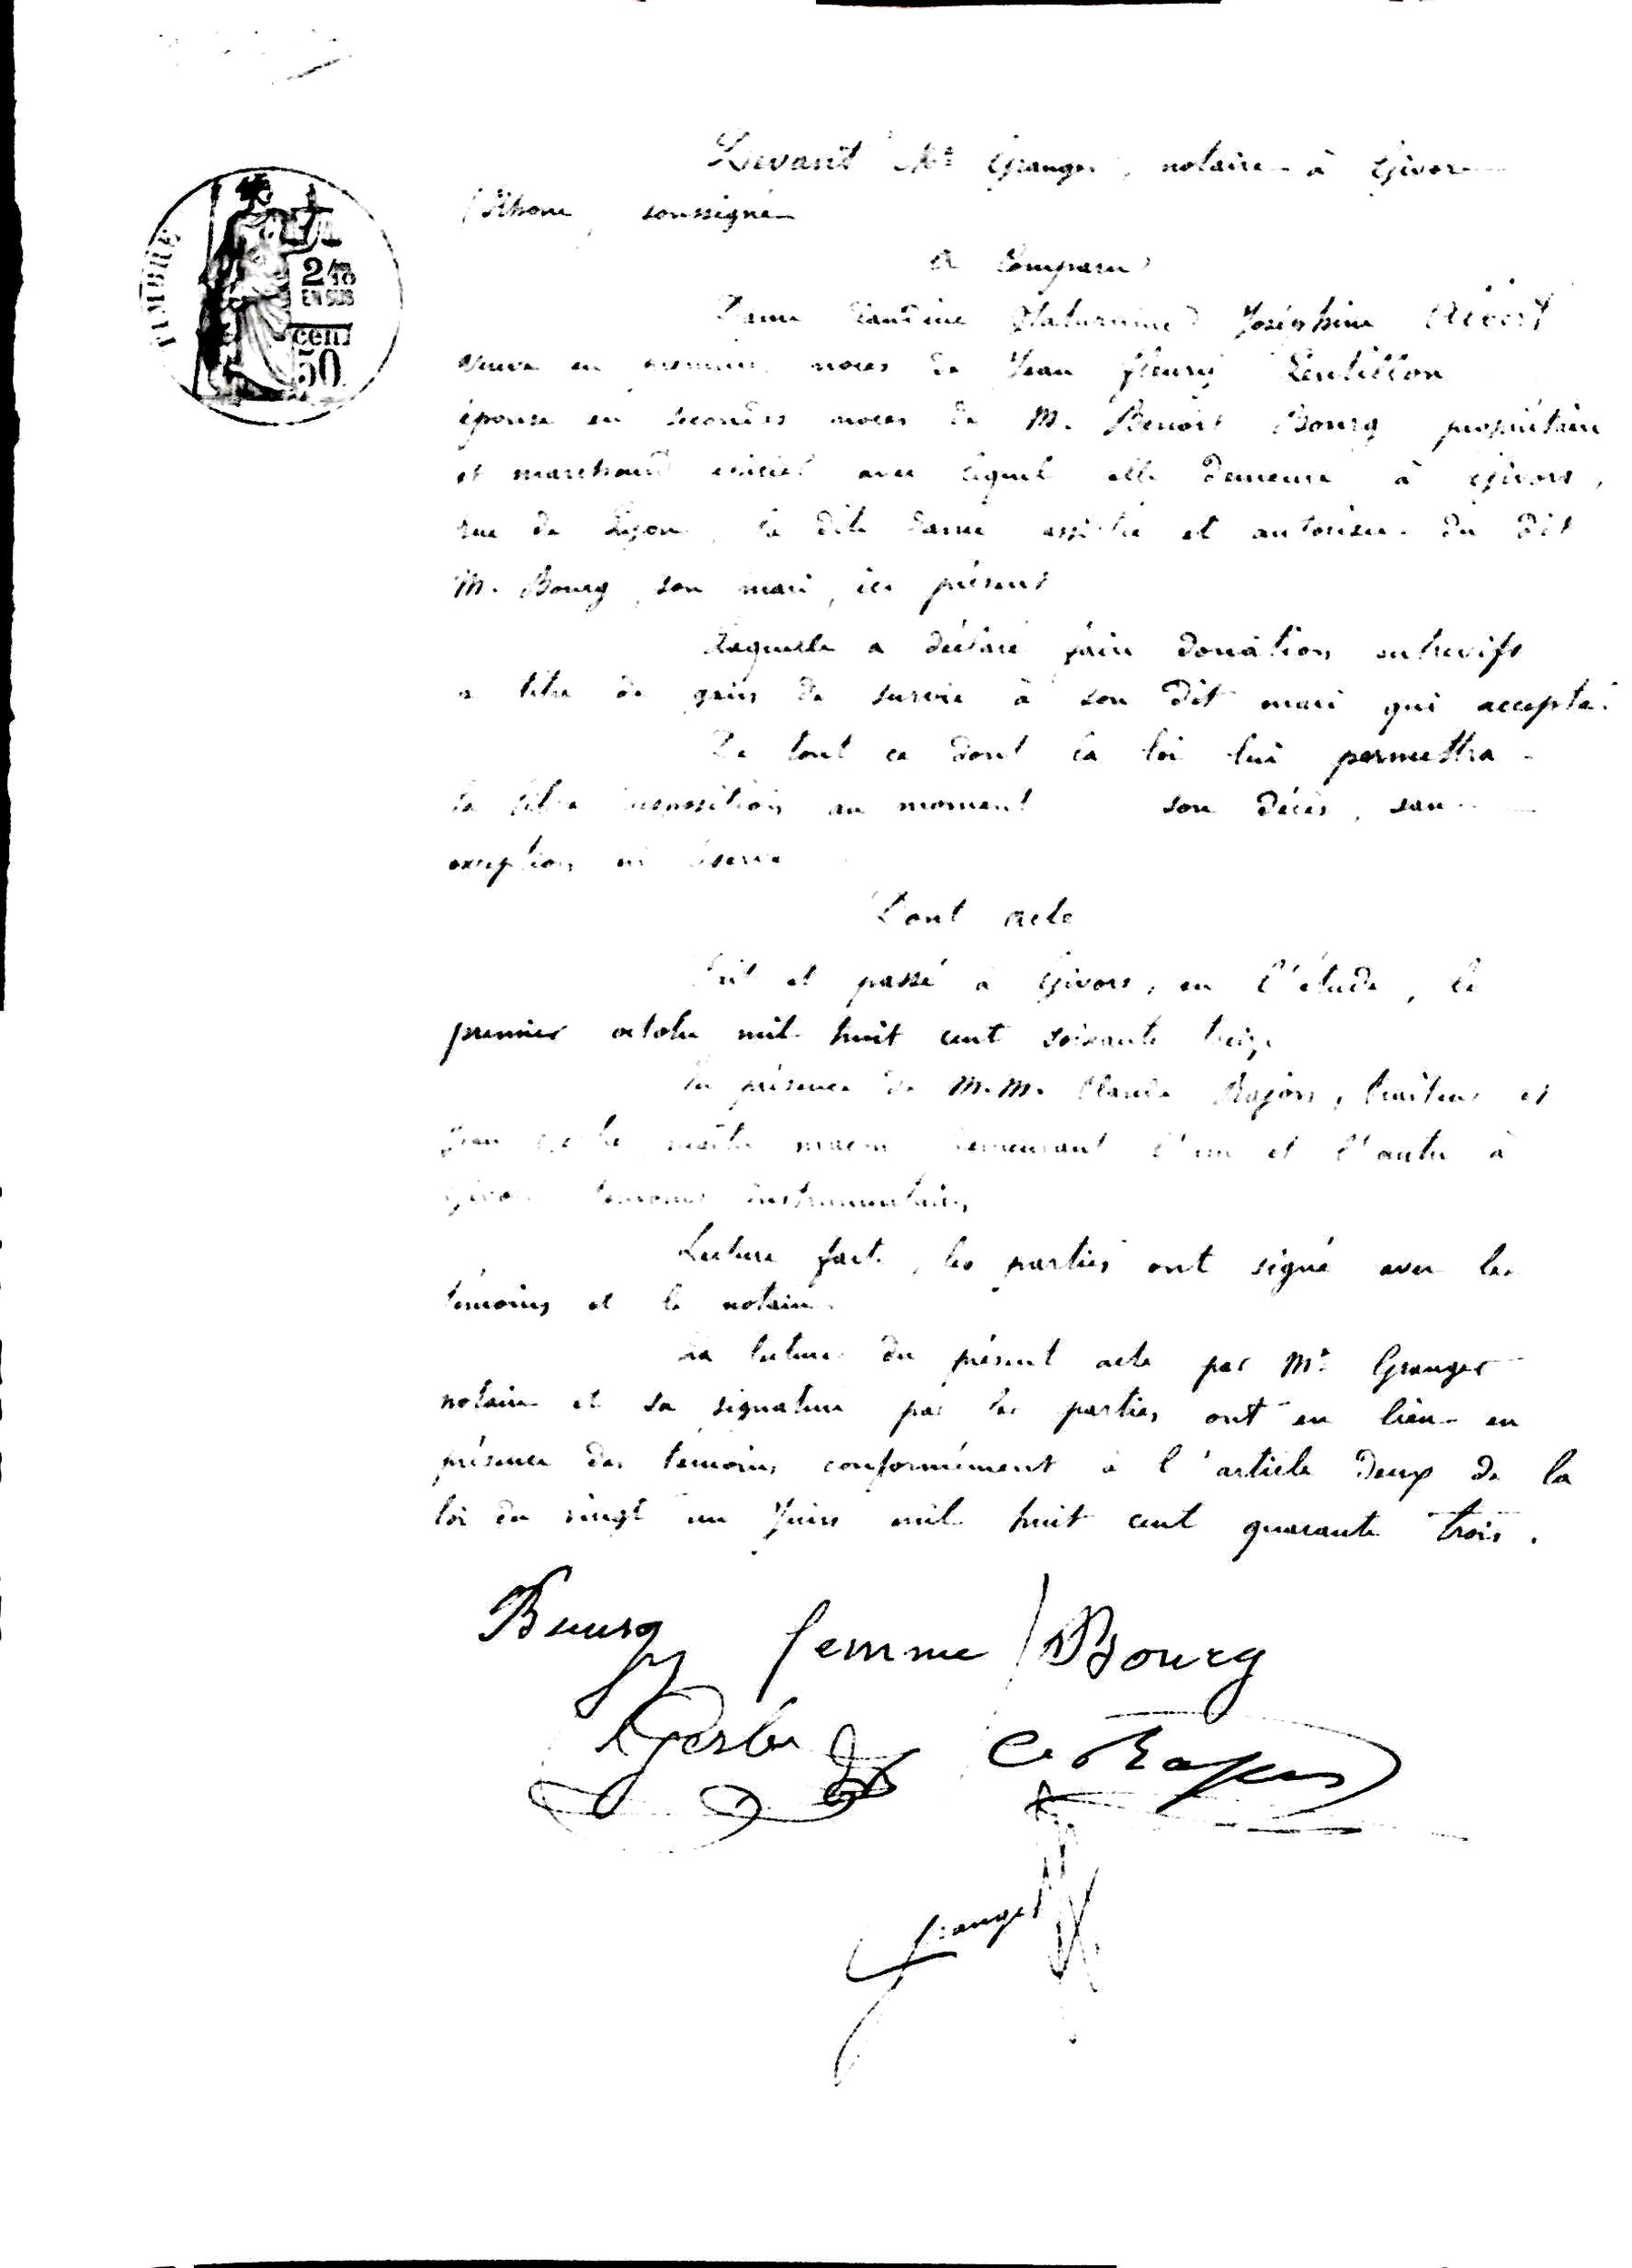 Devant Me Granger, notaire à Givors
(Rhône) soussigné
A Comparu
TIMBRE
2/10
EN SUS
50
cent
Dame Claudine Saturnine Joséphine
veuve en premières noces de Jean Fleury Lentillon
épouse en secondes noces de M. Benoit Bourg propriétaire
et marchand avec lequel elle demeure à Givors,
rue de Lyon, la dite dame assistée et autorisée du dit
M. Bourg, son mari, ici présent
Laquelle a déclaré faire donation entrevifs
a titre de gain de survie à son dit mari qui accepte.
De tout ce dont la loi lui permettra
la libre disposition au moment son décès, sans
exception ni réserve
Dont acte
Fait et passé à Givors, en l'étude, le
premier octobre mil huit cent soixante treize
En présence de M.M. Claude Rajon, traiteur et
Jean maître maçon demeurant l'un et l'autre à
Givors témoins instrumentaires
Lecture faite, les parties ont signé avec les
témoins et le notaire.
La lecture du présent acte par Me Granger
notaire et sa signature par les parties ont eu lieu en
présence des témoins conformément à l'article deux de la
loi du vingt un Juin mil huit cent quarante trois.
Bourg femme Bourg
C. Rajon
Granger